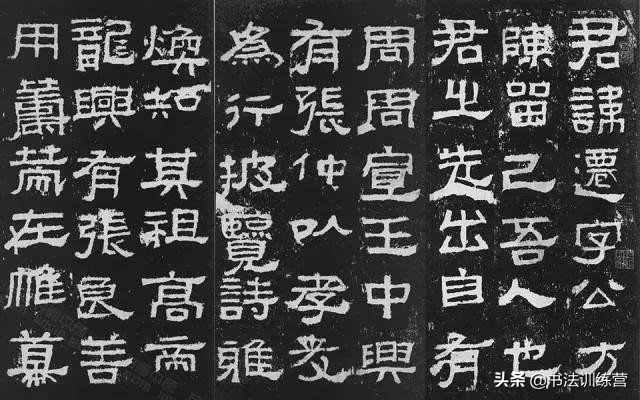 君諱遷字公方
陳留己吾人也
君之先出自有
周周宣王中興
有張仲以孝友
為行披覽詩雅
煥知其祖高帝
龍興有張良善
用籌策在帷幕
头条 @书法训练营